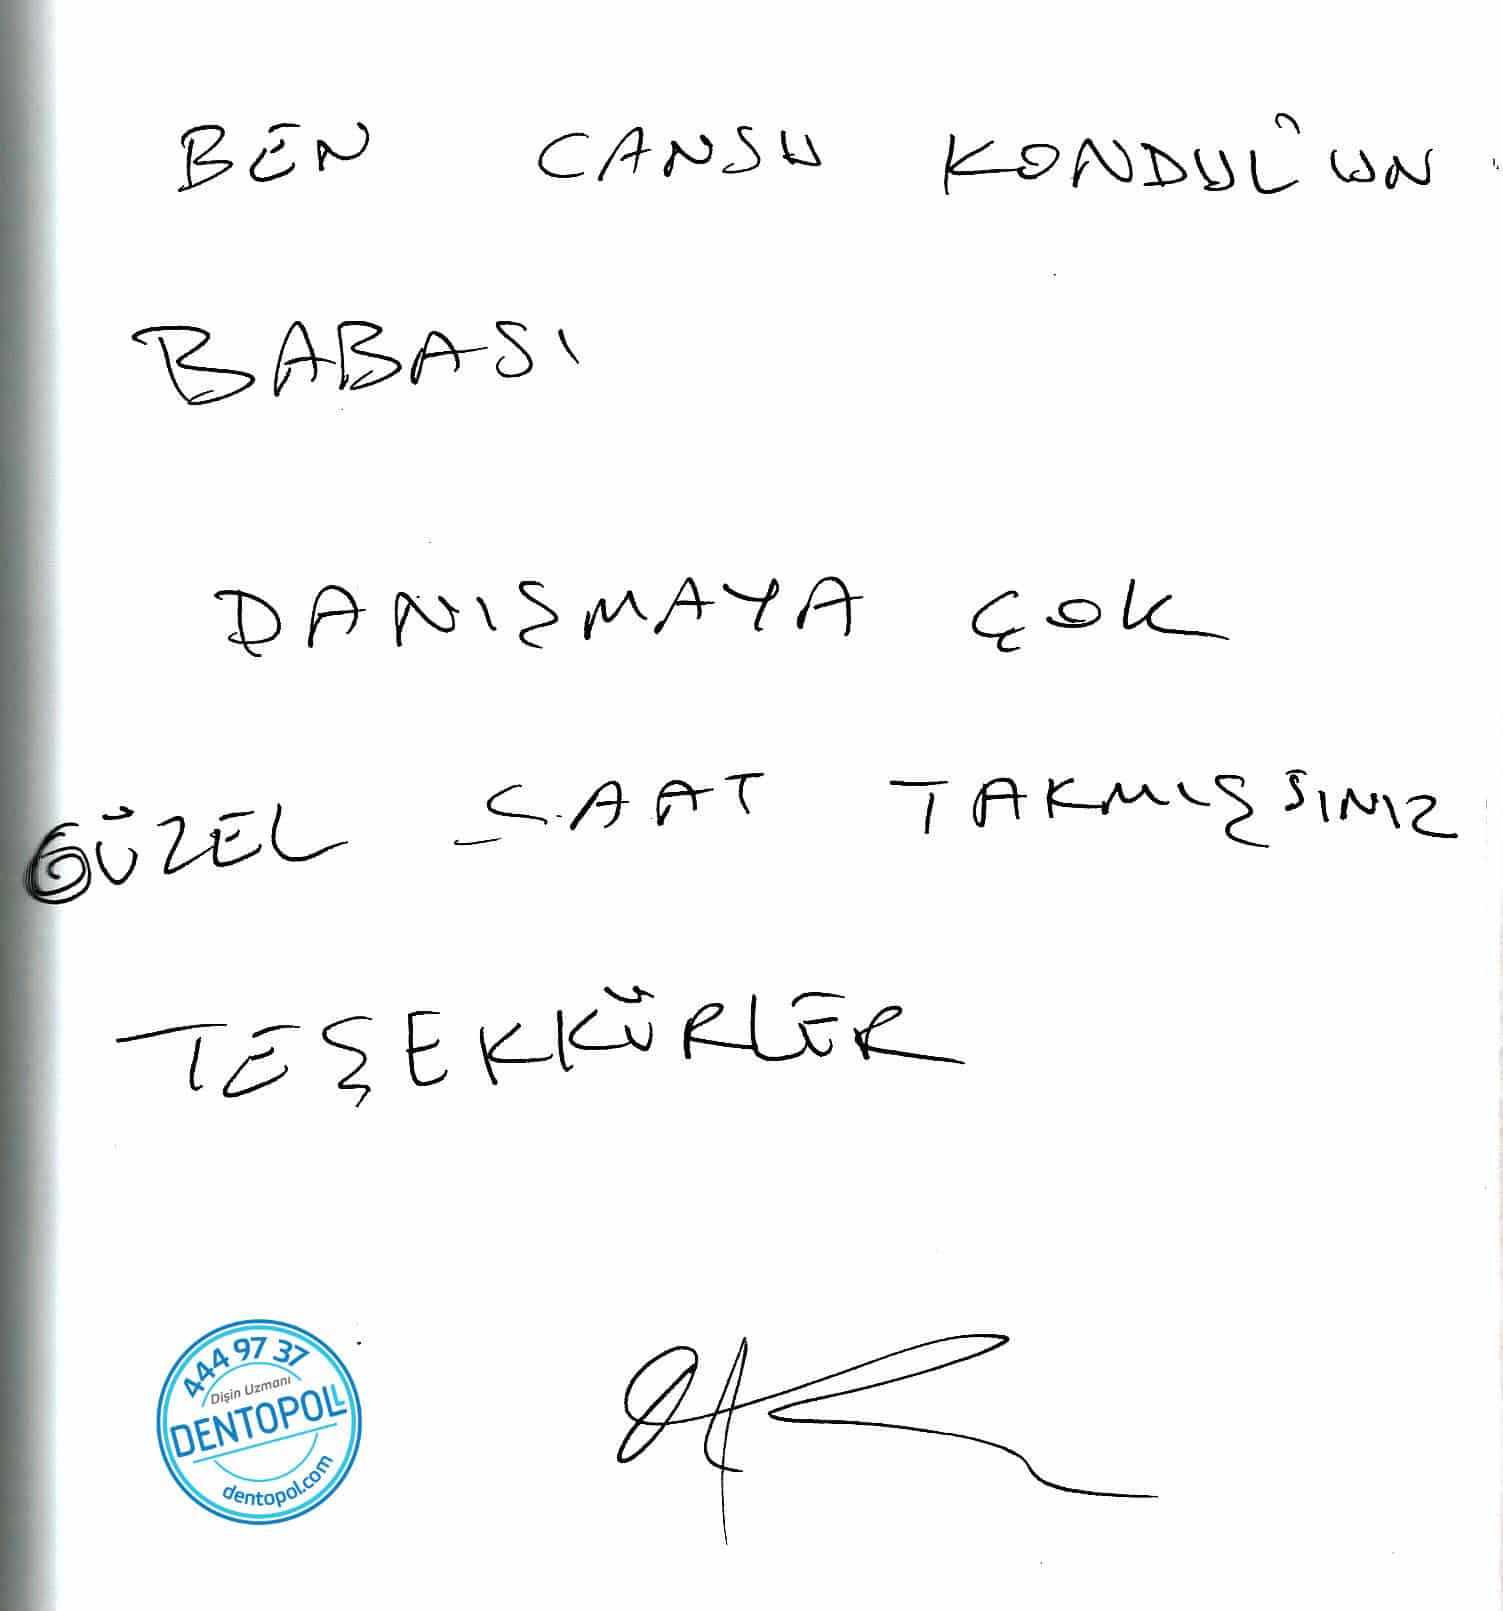 BEN CANSU KONDUL'UN
BABASI
DANIŞMAYA ÇOK
GÜZEL SAAT TAKMIŞSINIZ
TEŞEKKÜRLER
444 97 37
Dişin Uzmanı
DENTOPOLL
dentopol.com